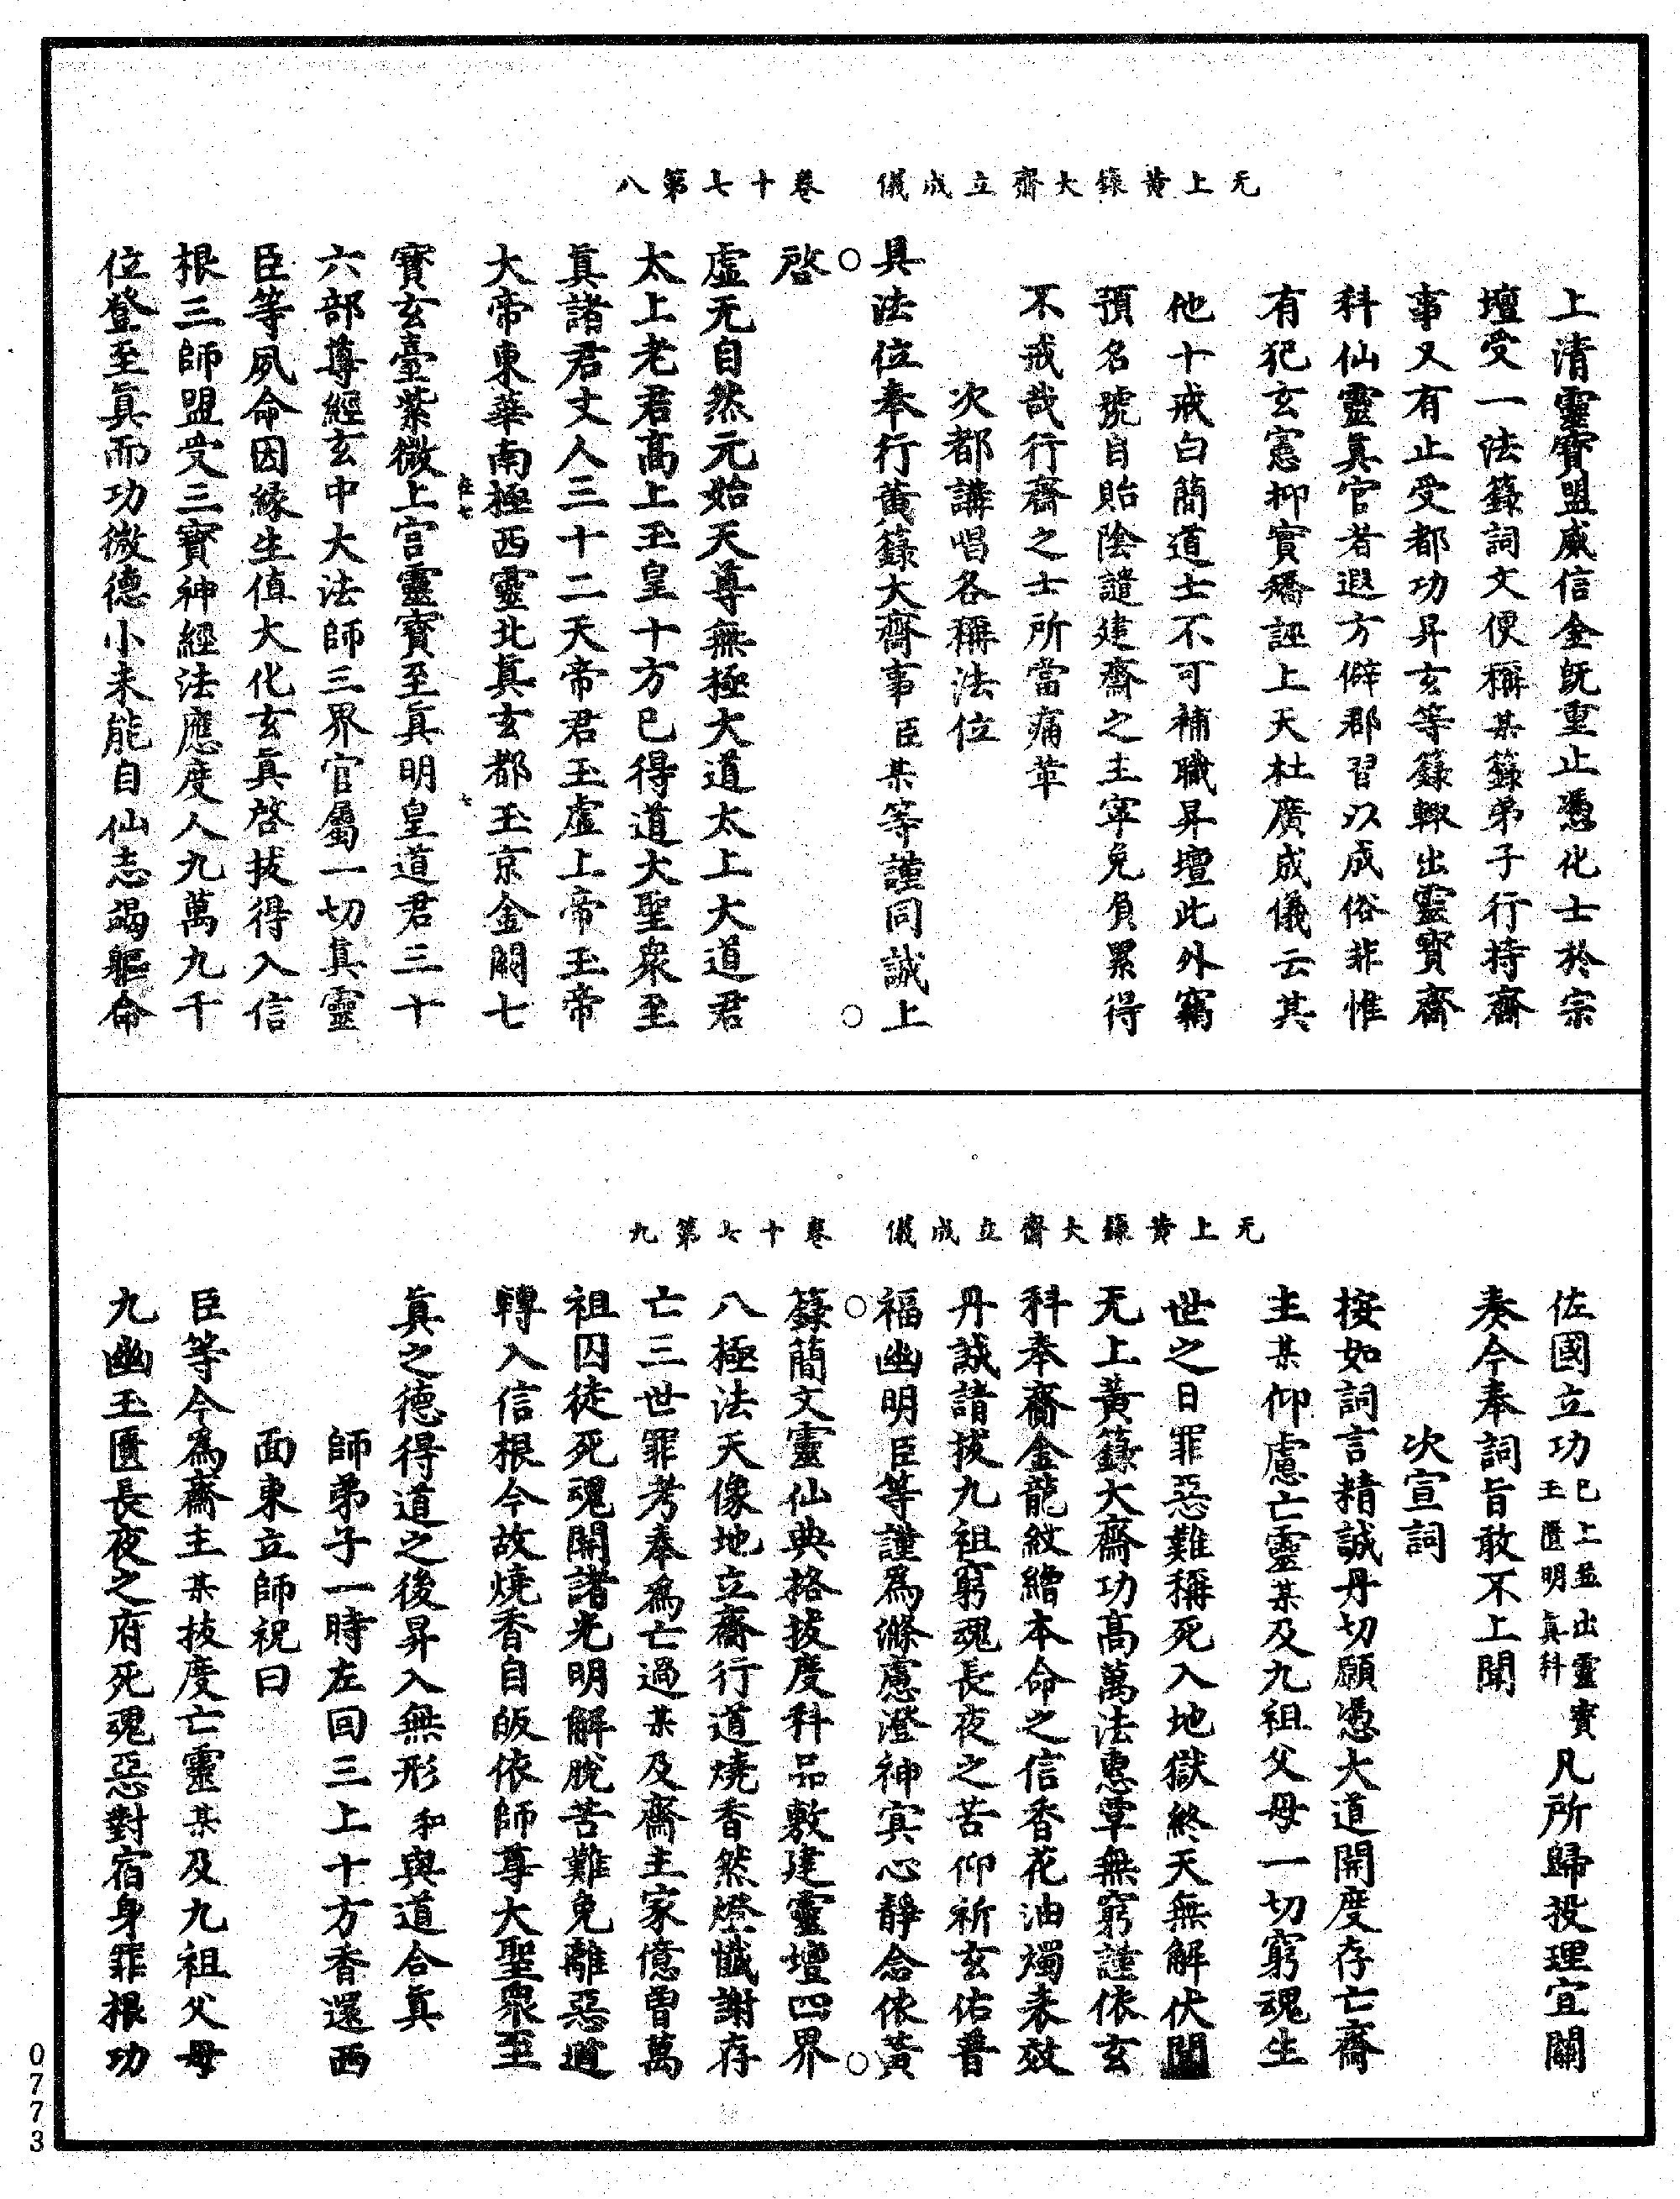 无上黃籙大齋立成儀　卷十七第八
上清靈寶盟威信金既重止憑化士於宗
壇受一法籙詞文便稱某籙弟子行持齋
事又有止受都功昇玄等籙輙出靈寶齋
科仙靈真官者遐方僻郡習以成俗非惟
有犯玄憲抑實矯誣上天杜廣成儀云其
他十戒白簡道士不可補職昇壇此外竊
預名號自貽陰譴建齋之主寧免負累得
不戒哉行齋之士所當痛革
次都講唱各稱法位
具法位奉行黃籙大齋事臣某等謹同誠上
啓
虛无自然元始天尊無極大道太上大道君
太上老君高上玉皇十方已得道大聖衆至
真諸君丈人三十二天帝君玉虛上帝玉帝
大帝東華南極西靈北真玄都玉京金闕七
寶玄臺紫微上宮靈寶至真明皇道君三十
六部尊經玄中大法師三界官屬一切真靈
臣等夙命因緣生值大化玄真啓拔得入信
根三師盟受三寶神經法應度人九萬九千
位登至真而功微德小未能自仙志竭軀命
无上黃籙大齋立成儀　卷十七第九
佐國立功已上並出靈寶玉匱明真科凡所歸投理宜關
奏今奉詞旨敢不上聞
次宣詞
按如詞言精誠丹切願憑大道開度存亡齋
主某仰慮亡靈某及九祖父母一切窮魂生
世之日罪惡難稱死入地獄終天無解伏聞
无上黃籙大齋功高萬法惠覃無窮謹依玄
科奉齎金龍紋繒本命之信香花油燭來效
丹誠請拔九祖窮魂長夜之苦仰祈玄佑普
福幽明臣等謹為滌慮澄神冥心靜念依黃
籙簡文靈仙典格拔度科品敷建靈壇四界
八極法天像地立齋行道燒香然燈懺謝存
亡三世罪考奉為亡過某及齋主家億曾萬
祖囚徒死魂開諸光明解脫苦難免離惡道
轉入信根今故燒香自皈依師尊大聖衆至
真之德得道之後昇入無形和與道合真
師弟子一時左回三上十方香還西
面東立師祝曰
臣等今為齋主某拔度亡靈某及九祖父母
九幽玉匱長夜之府死魂惡對宿身罪根功
0773